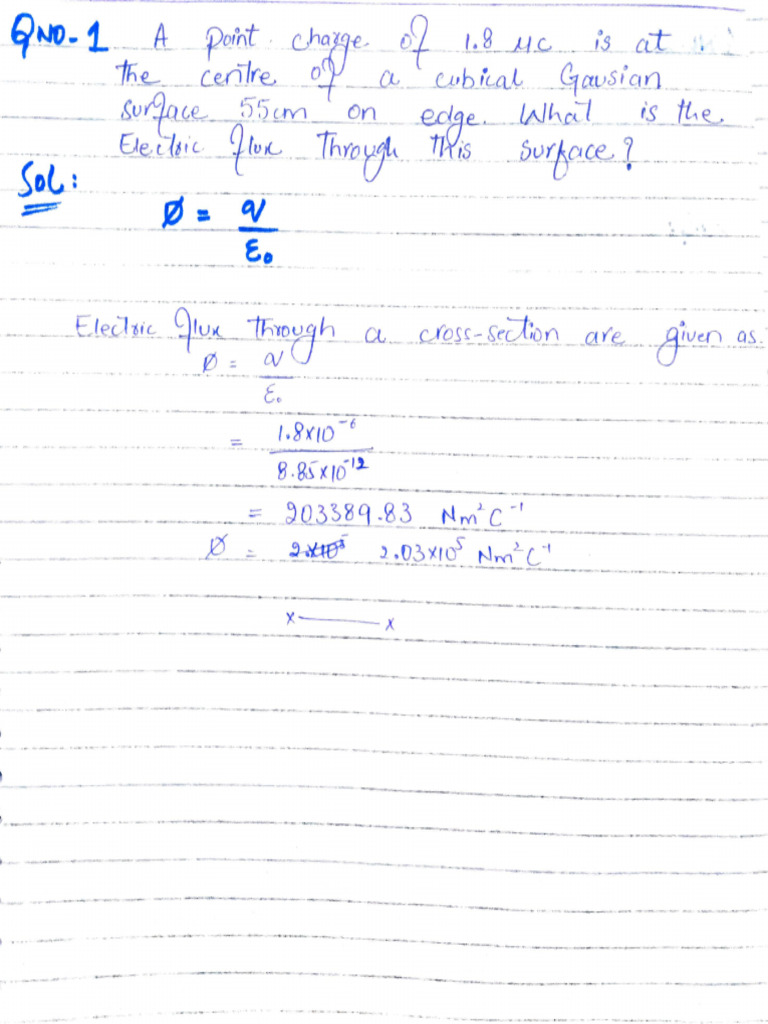 QNO-1 A point charge of 1.8 μC is at
the centre of a cubical Gausian
surface 55cm on edge. What is the
Electric flux Through This surface?
Sol:
Ø = q
ε₀
Electric flux through a cross-section are given as.
Ø = q
ε₀
= 1.8×10⁻⁶
8.85×10⁻¹²
= 203389.83 Nm²C⁻¹
Ø = 2.03×10⁵ Nm²C⁻¹
x——x